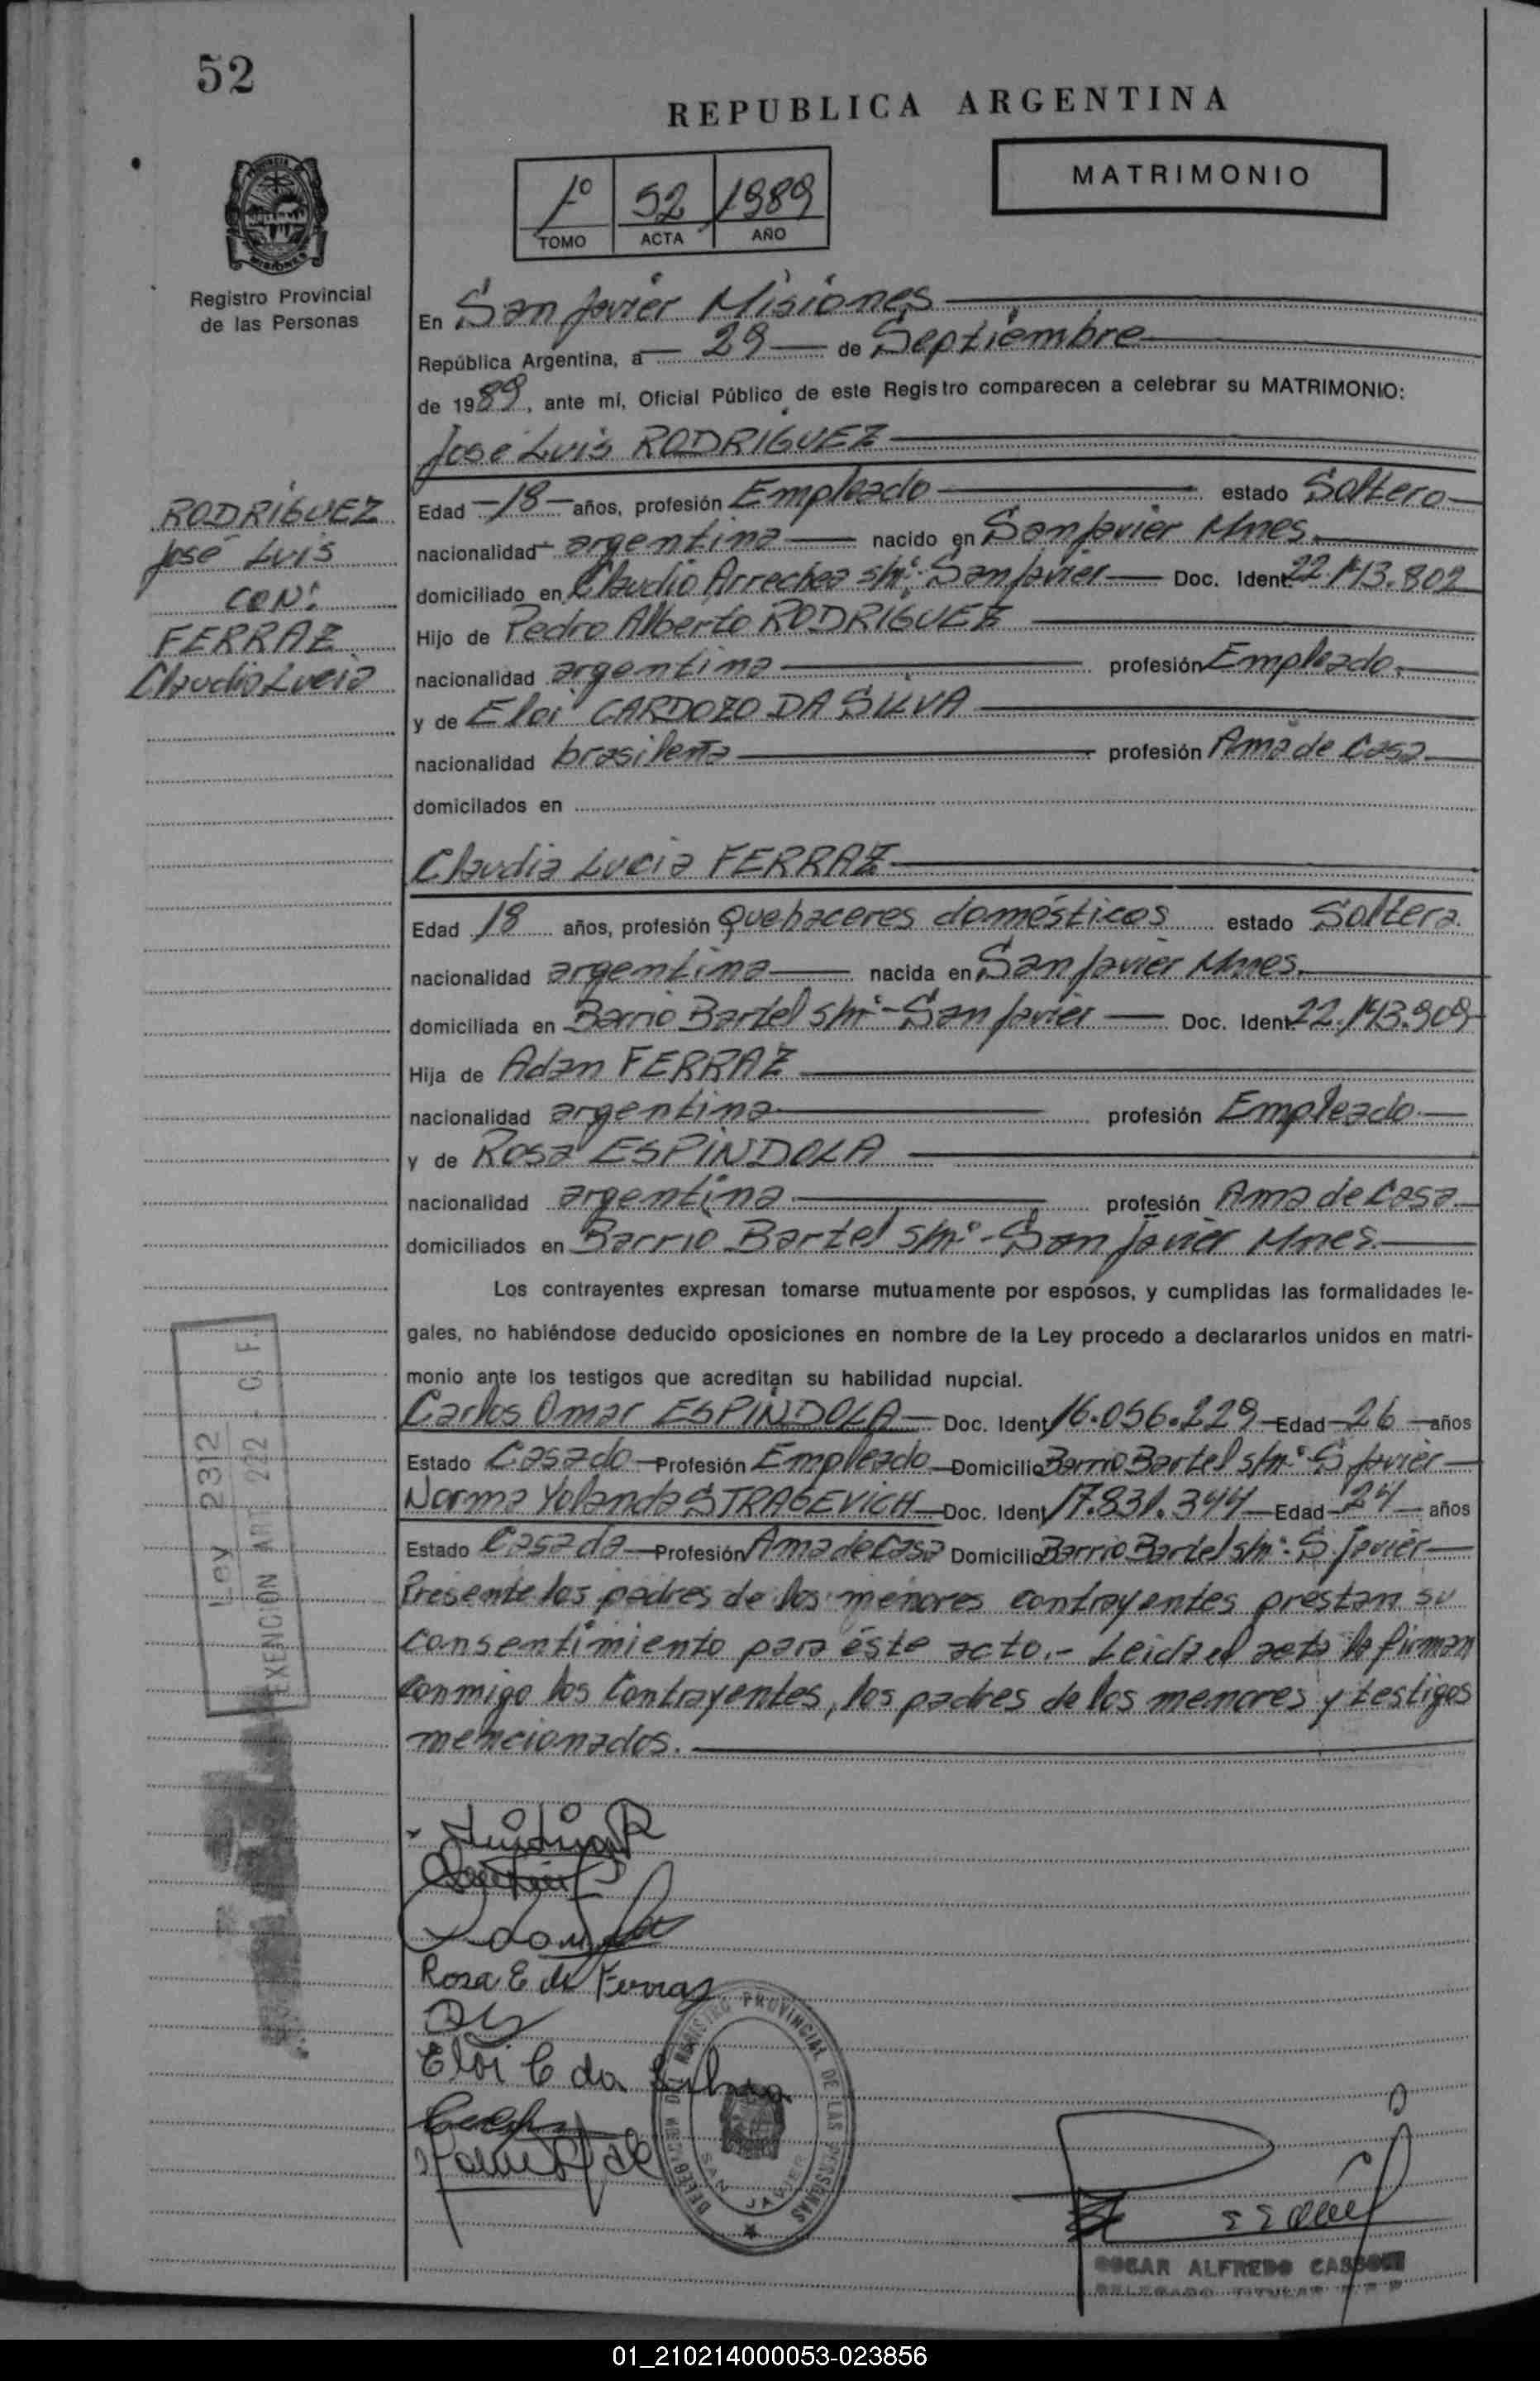 52
REPUBLICA ARGENTINA
MATRIMONIO
1º 52 1989
TOMO ACTA AÑO
Registro Provincial
de las Personas
En San Javier Misiones
República Argentina, a 29 de Septiembre
de 1989, ante mí, Oficial Público de este Registro comparecen a celebrar su MATRIMONIO:
José Luis RODRIGUEZ
RODRIGUEZ
José Luis
CON:
FERRAZ
Claudia Lucia
Edad -18- años, profesión Empleado estado Soltero
nacionalidad argentina nacido en San Javier Mnes.
domiciliado en Claudio Arrechea s/nº- San Javier Doc. Ident 22.143.802
Hijo de Pedro Alberto RODRIGUEZ
nacionalidad argentina profesión Empleado.
y de Eloi CARDOZO DA SILVA
nacionalidad brasileña profesión Ama de Casa
domicilados en
Claudia Lucia FERRAZ
Edad 18 años, profesión Quehaceres domésticos estado Soltera.
nacionalidad argentina nacida en San Javier Mnes.
domiciliada en Barrio Bartel s/nº- San Javier Doc. Ident 22.143.909
Hija de Adan FERRAZ
nacionalidad argentina profesión Empleado
y de Rosa ESPINDOLA
nacionalidad argentina profesión Ama de Casa
domiciliados en Barrio Bartel s/nº- San Javier Mnes.
Los contrayentes expresan tomarse mutuamente por esposos, y cumplidas las formalidades le-
gales, no habiéndose deducido oposiciones en nombre de la Ley procedo a declararlos unidos en matri-
monio ante los testigos que acreditan su habilidad nupcial.
Carlos Omar ESPINDOLA Doc. Ident 16.056.229 Edad 26 años
Estado Casado Profesión Empleado Domicilio Barrio Bartel s/nº- S Javier
Norma Yolanda STRAGEVICH Doc. Ident 17.831.344 Edad 24 años
Estado Casada Profesión Ama de Casa Domicilio Barrio Bartel s/nº- S. Javier
Presente los padres de los menores contrayentes prestan su
consentimiento para éste acto.- Leída el acta la firman
conmigo los Contrayentes, los padres de los menores y testigos
mencionados.
Ley 2312
EXENCION ART 222 - C. F.
Rosa E de Ferraz
Eloi C da Silva
DELEGACION REGISTRO PROVINCIAL DE LAS PERSONAS
SAN JAVIER
ALFREDO
DELEGADO TITULAR
01_210214000053-023856